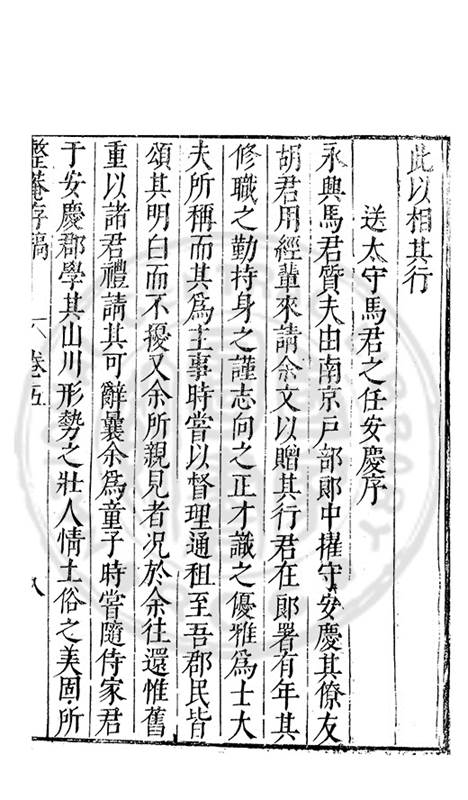 此以相其行
送太守馬君之任安慶序
永興馬君質夫由南京戸部郎中擢守安慶其僚友
胡君用經輩來請余文以贈其行君在郎署有年其
修職之勤持身之謹志向之正才識之優雅爲士大
夫所稱而其爲主事時嘗以督理逋租至吾郡民皆
頌其明白而不擾又余所親見者况於余往還惟舊
重以諸君禮請其可辭曩余爲童子時嘗隨侍家君
于安慶郡學其山川形勢之壯人情土俗之美固所
整菴存稿 卷五 八